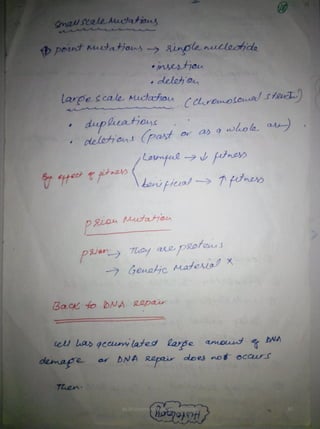 Small scale Mutations
① point Mutations → single nucleotide
• insertion
• deletion
Large scale Mutation (Chromosomal
• duplications
• deletions (past or as a whole arm)
By effect of fitness
harmful → ↓ fitness
beneficial → ↑ fitness
prion Mutation
prion → They are proteins
→ Genetic Material X
Back to DNA repair
cell has accumilated large amount of DNA
demage or DNA repair does not occurs
Then.
Histology